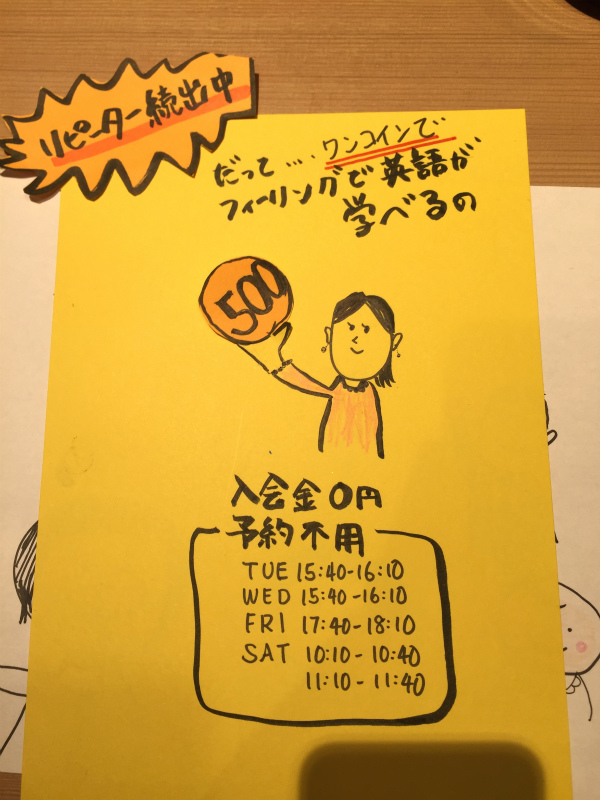 リピーター続出中
だって....ワンコインで
フィーリングで英語が
学べるの
500
入会金0円
予約不用
TUE 15:40-16:10
WED 15:40-16:10
FRI 17:40-18:10
SAT 10:10-10:40
11:10-11:40